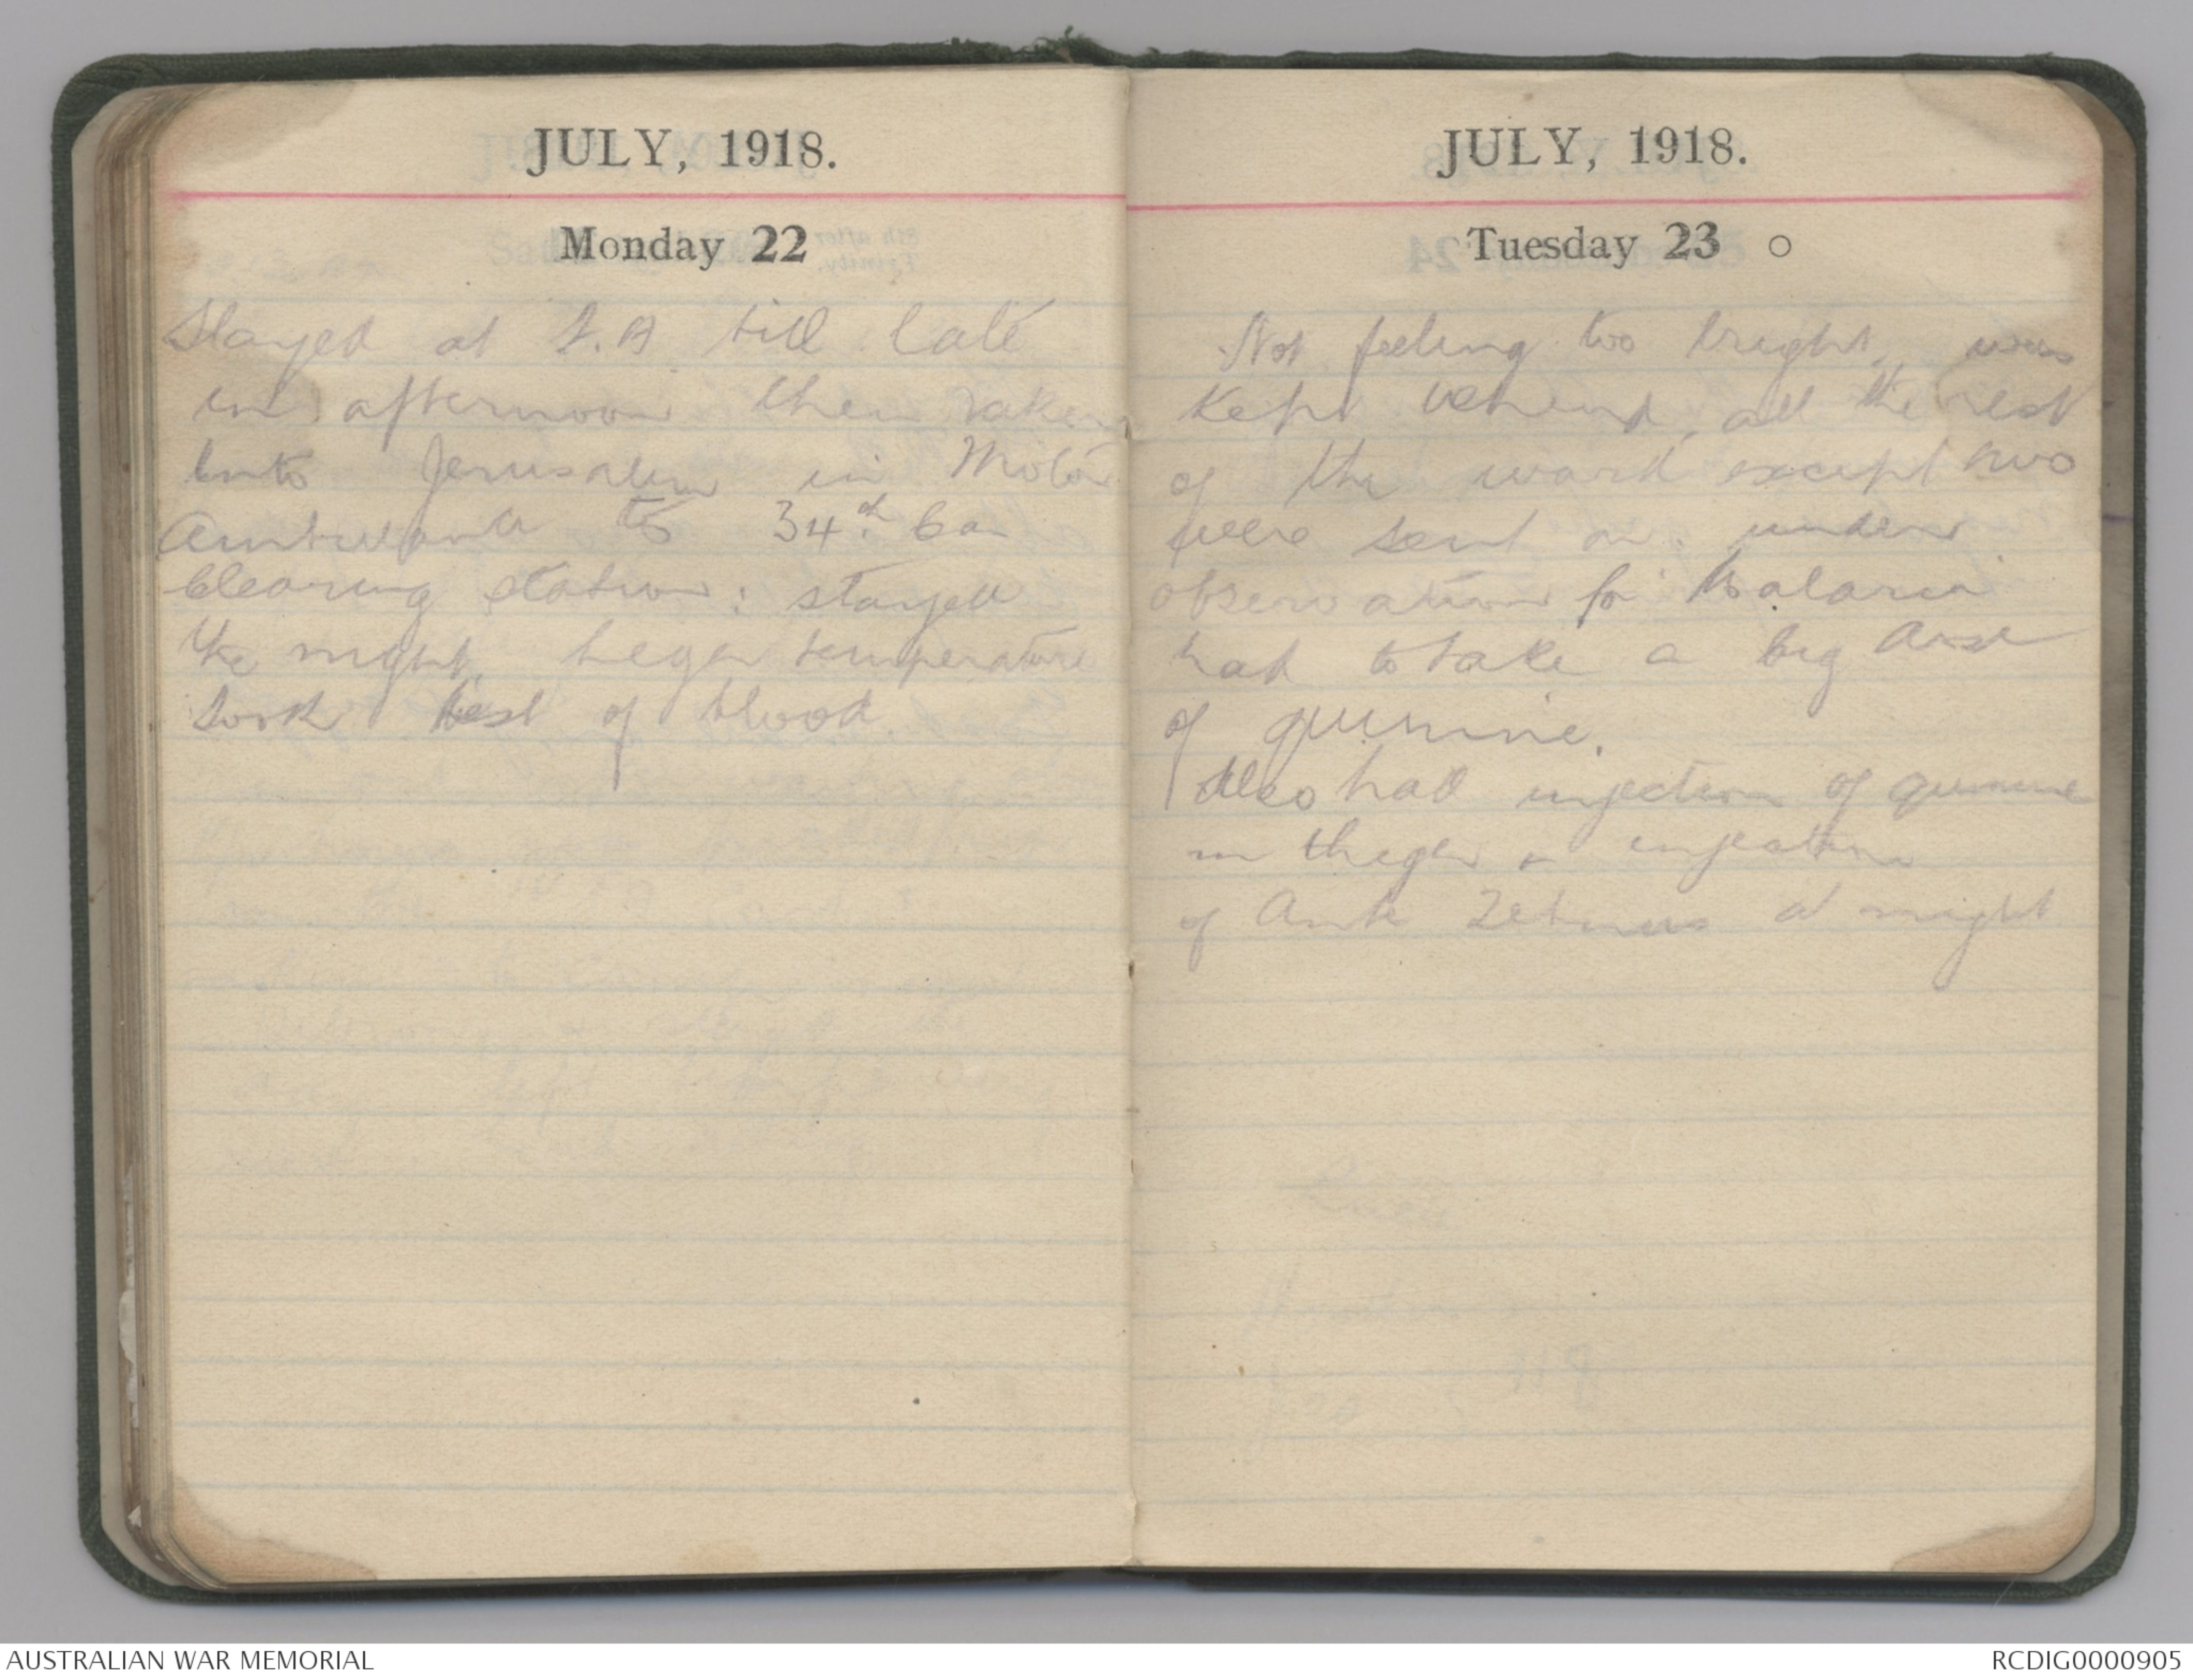 JULY, 1918.
Monday 22
Stayed at F.A till late
in afternoon then taken
into Jerusalem in Motor
Ambulance to 34th Cas
Clearing station: stayed
the night, temperature
took test of blood.
JULY, 1918.
Tuesday 23 ○
Not feeling too bright, was
kept behind, all the rest
of the ward except two
were sent on. under
observation for Malaria
had to take a big dose
of quinine.
Also had injection of quinine
in & injection
of Anti Tetnus at night
AUSTRALIAN WAR MEMORIAL
RCDIG0000905